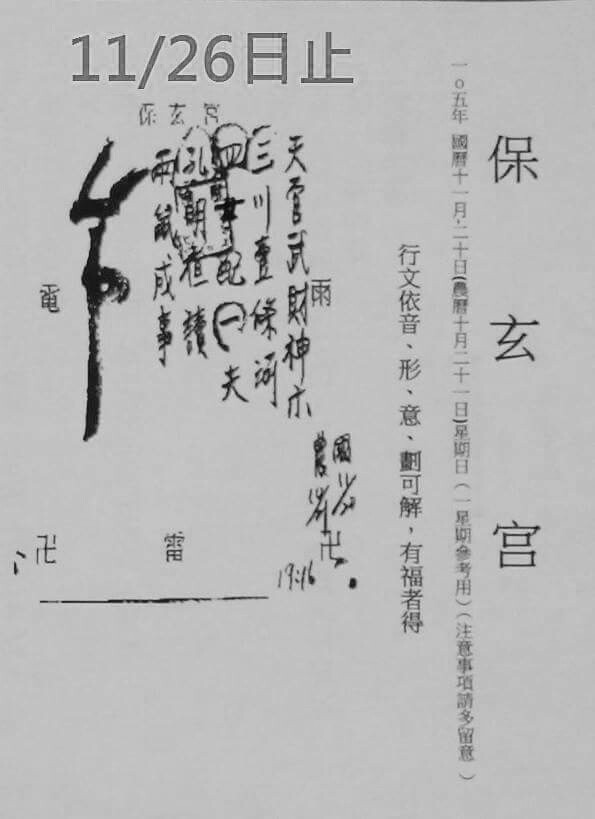 11/26日止
保玄宮
一0五年 國曆十一月二十日(農曆十月二十一日)星期日(一星期參考用)(注意事項請多留意)
行文依音、形、意、劃可解，有福者得
保玄宮
雨
天官武財神示
三川壹條河
四書配一夫
孔明看讀
兩鼠成事
電
國
農
19:16
卍
雷
卍